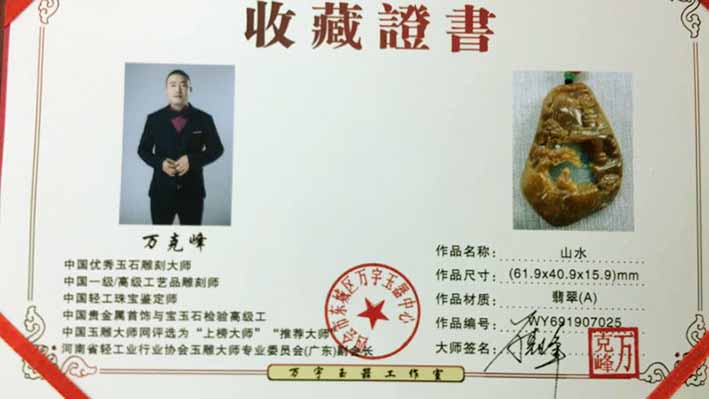 收藏證書
万克峰
中国优秀玉石雕刻大师
中国一级/高级工艺品雕刻师
中国轻工珠宝鉴定师
中国贵金属首饰与宝玉石检验高级工
中国玉雕大师网评选为“上榜大师”“推荐大师”
河南省轻工业行业协会玉雕大师专业委员会(广东)副会长
四会市东城区万字玉器中心
作品名称： 山水
作品尺寸： (61.9x40.9x15.9)mm
作品材质： 翡翠(A)
作品编号： WY691907025
大师签名： 万克峰
万克峰
万字玉器工作室